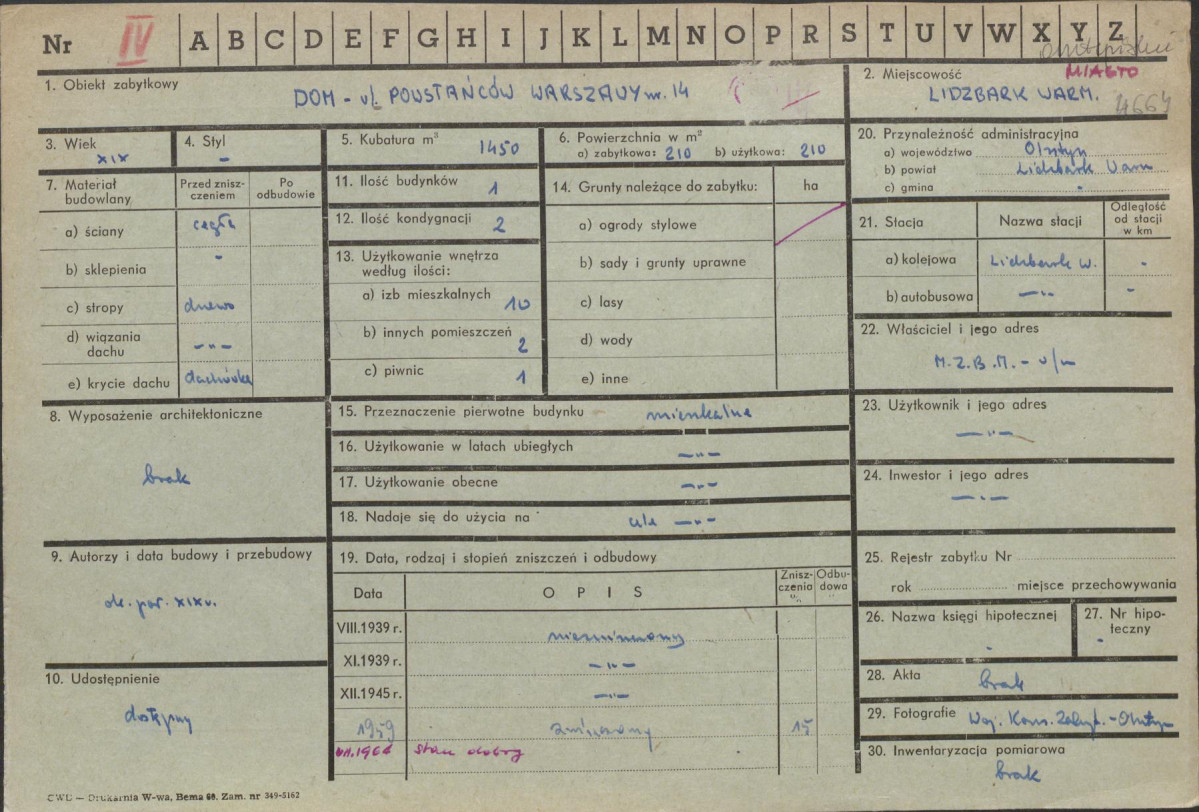 Nr IV A B C D E F G H I J K L M N O P R S T U V W X Y Z
1. Obiekt zabytkowy
DOM - ul. POWSTAŃCÓW WARSZAWY nr. 14
2. Miejscowość
MIASTO
LIDZBARK WARM.
4664
3. Wiek
XIX
4. Styl
-
5. Kubatura m³
1450
6. Powierzchnia w m²
a) zabytkowa: 210 b) użytkowa: 210
20. Przynależność administracyjna
a) województwo Olsztyn
b) powiat Lidzbark Warm
c) gmina -
7. Materiał budowlany
Przed zniszczeniem
Po odbudowie
a) ściany cegła
b) sklepienia -
c) stropy drewno
d) wiązania dachu -"-
e) krycie dachu dachówka
11. Ilość budynków 1
12. Ilość kondygnacji 2
13. Użytkowanie wnętrza według ilości:
a) izb mieszkalnych 10
b) innych pomieszczeń 2
c) piwnic 1
14. Grunty należące do zabytku: ha
a) ogrody stylowe
b) sady i grunty uprawne
c) lasy
d) wody
e) inne
21. Stacja Nazwa stacji Odległość od stacji w km
a) kolejowa Lidzbark W. -
b) autobusowa -"- -
22. Właściciel i jego adres
M.Z.B.M. - w/m
8. Wyposażenie architektoniczne
brak
15. Przeznaczenie pierwotne budynku mieszkalne
16. Użytkowanie w latach ubiegłych -"-
17. Użytkowanie obecne -"-
18. Nadaje się do użycia na cele -"-
23. Użytkownik i jego adres
-"-
24. Inwestor i jego adres
-"-
9. Autorzy i data budowy i przebudowy
ok. poł. XIX w.
19. Data, rodzaj i stopień zniszczeń i odbudowy
Data OPIS Zniszczenia % Odbudowa %
VIII.1939 r. niezniszczony
XI.1939 r. -"-
XII.1945 r. -"-
1959 zniszczony 15
VII.1966 stan dobry
10. Udostępnienie
dostępny
25. Rejestr zabytku Nr
rok miejsce przechowywania
26. Nazwa księgi hipotecznej
-
27. Nr hipoteczny
-
28. Akta brak
29. Fotografie Woj. Kons. Zabyt. - Olsztyn
30. Inwentaryzacja pomiarowa
brak
CWD — Drukarnia W-wa, Bema 60. Zam. nr 349-5162